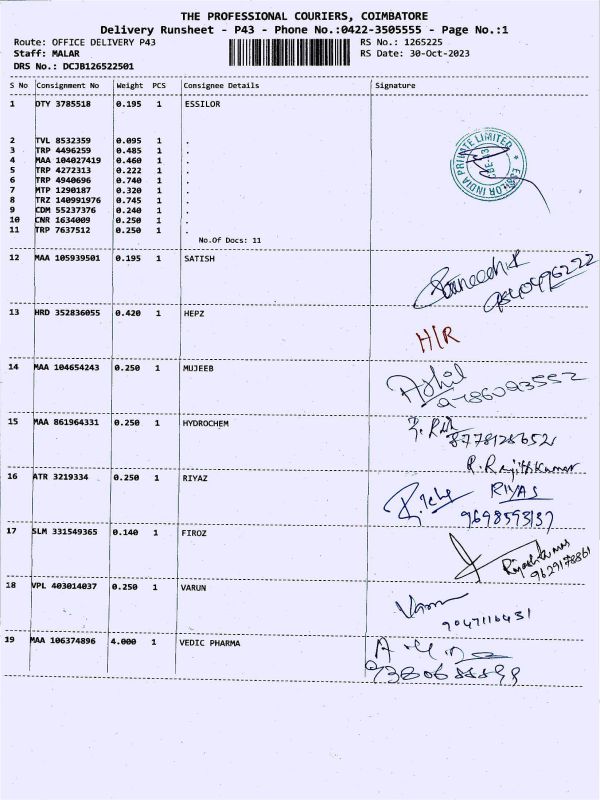 THE PROFESSIONAL COURIERS, COIMBATORE
Delivery Runsheet - P43 - Phone No.:0422-3505555 - Page No.:1
Route: OFFICE DELIVERY P43 RS No.: 1265225
Staff: MALAR RS Date: 30-Oct-2023
DRS No.: DCJB126522501
S No Consignment No Weight PCS Consignee Details Signature
1 DTY 3785518 0.195 1 ESSILOR
2 TVL 8532359 0.095 1 .
3 TRP 4496259 0.485 1 .
4 MAA 104027419 0.460 1 .
5 TRP 4272313 0.222 1 .
6 TRP 4940696 0.740 1 .
7 MTP 1290187 0.320 1 .
8 TRZ 140991976 0.745 1 .
9 CDM 55237376 0.240 1 .
10 CNR 1634009 0.250 1 .
11 TRP 7637512 0.250 1 .
No.Of Docs: 11
ESSILOR INDIA PRIVATE LIMITED
12 MAA 105939501 0.195 1 SATISH
9840496222
13 HRD 352836055 0.420 1 HEPZ
H/R
14 MAA 104654243 0.250 1 MUJEEB
9786093552
15 MAA 861964331 0.250 1 HYDROCHEM
8778128652
R. Rajithkumar
16 ATR 3219334 0.250 1 RIYAZ
RIYAS
9698593137
17 SLM 331549365 0.140 1 FIROZ
9629178861
18 VPL 403014037 0.250 1 VARUN
Varun
9047116431
19 MAA 106374896 4.000 1 VEDIC PHARMA